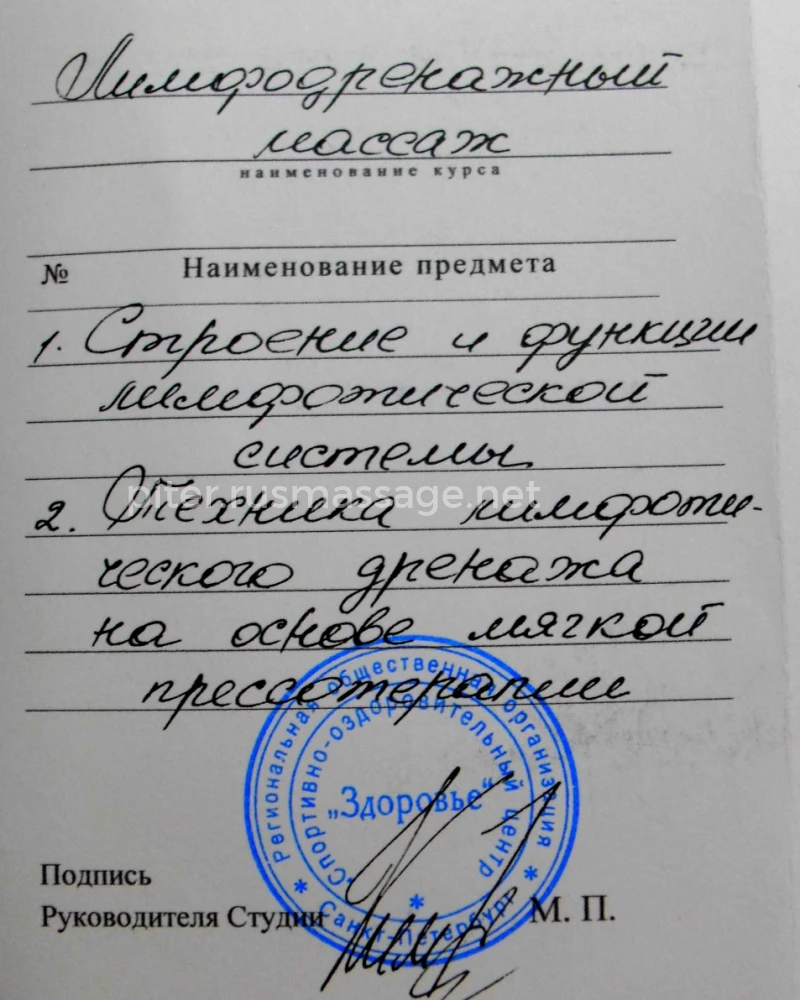 Лимфодренажный
массаж
наименование курса
№ Наименование предмета
1. Строение и функции
лимфотической
системы
piter.rusmassage.net
2. Техника лимфоти-
ческого дренажа
на основе мягкой
прессотерапии
* Региональная общественная организация *
Санкт-Петербург
Спортивно-оздоровительный центр
*
„Здоровье“
Подпись
Руководителя Студии М. П.